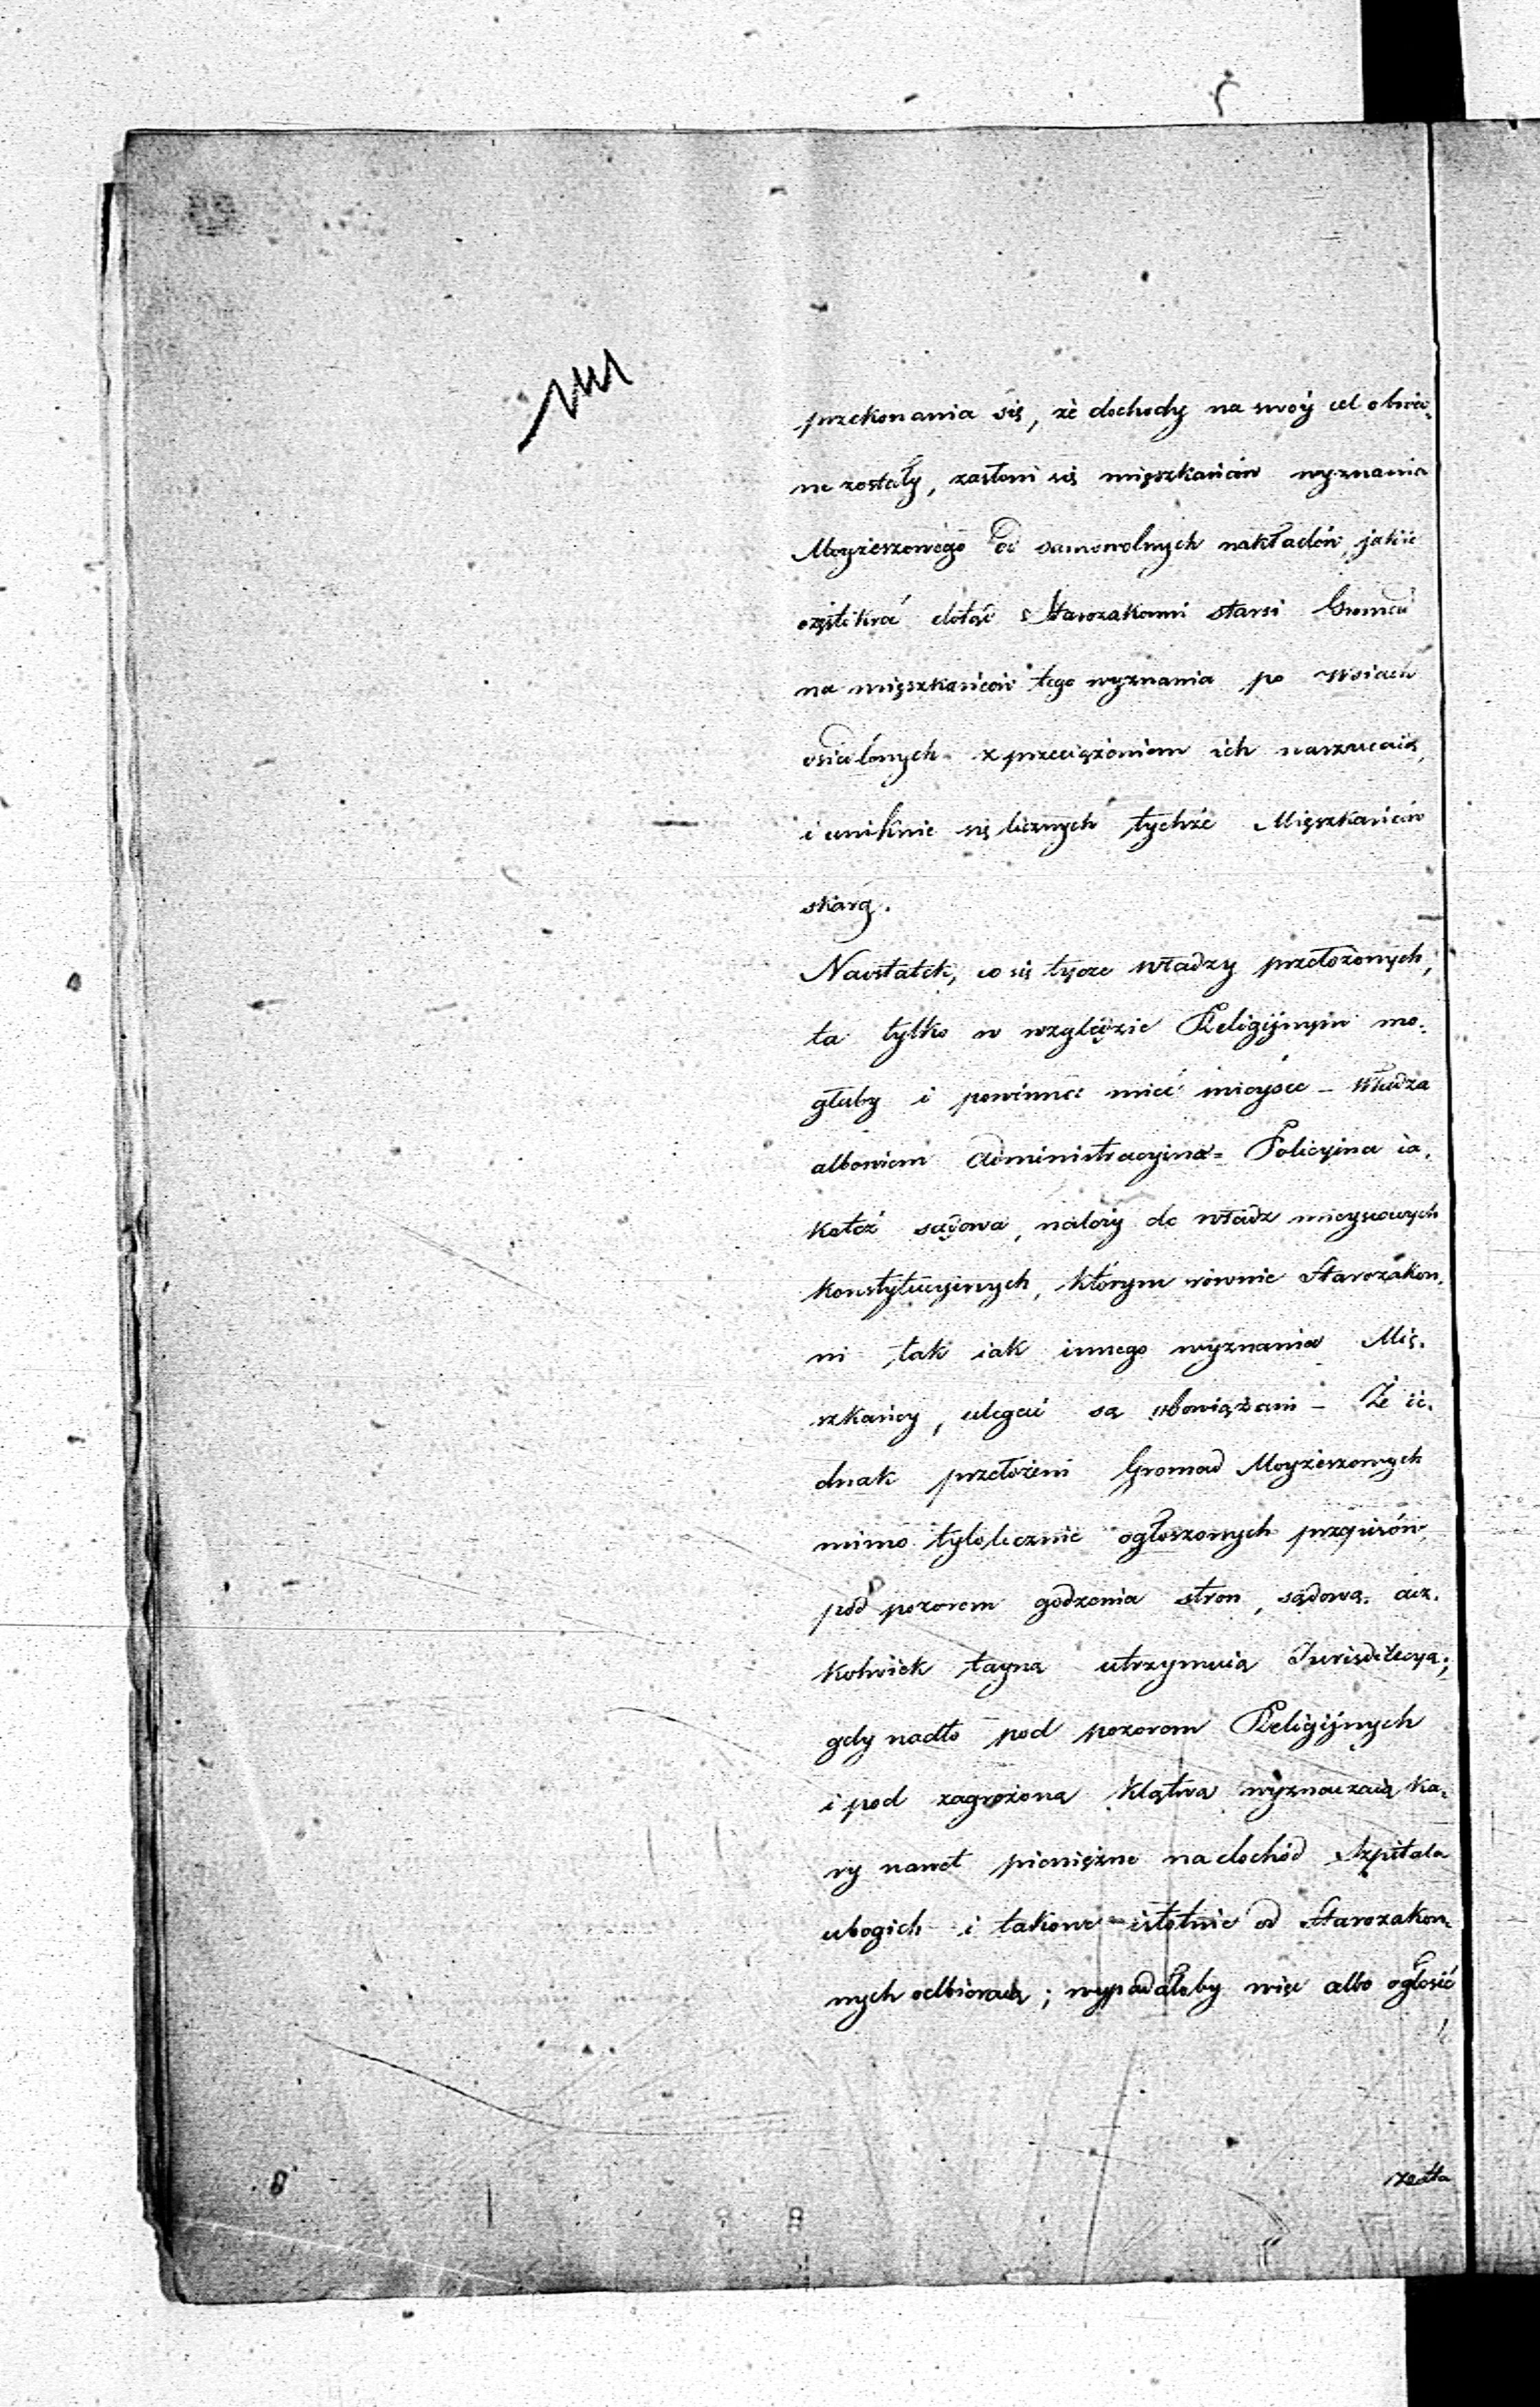 przekonania się, że dochody na swóy cel obróco,
ne zostały, zasłoni się mięszkańców wyznania
Moyżeszowego od samowolnych nakładów, jakie
częstokroć dotąd Starozakonni starsi Gromad
na mięszkańców tego wyznania po Wsiach
osiedlonych z przeciążeniem ich narzucaią,
i uniknie się licznych tychże Mięszkańców
skarg.
Naostatek, co się tycze władzy przełożonych,
ta tylko w względzie Religijnym mo,
głaby i powinna mieć mieysce – Władza
albowiem Administracyina = Policyina ia,
kateż sądowa, należy do władz mieyscowych
Konstytucyinych, którym równie Starozakon,
ni tak iak innego wyznania Mię,
szkańcy, ulegać są obowiązani – Że ie,
dnak przełożeni Gromad Moyżeszowych
mimo tylolicznie ogłoszonych przepisów,
pod pozorem godzenia stron, sądową, acz,
kolwiek tayną utrzymuią Jurisdikcyą;
gdy nadto pod pozorem Religijnych
i pod zagrożoną klątwą wyznaczaią ka,
ry nawet pieniężne na dochód Szpitala
ubogich i takowe istotnie od Starozakon,
nych odbieraią; wypadałoby więc albo ogłosić